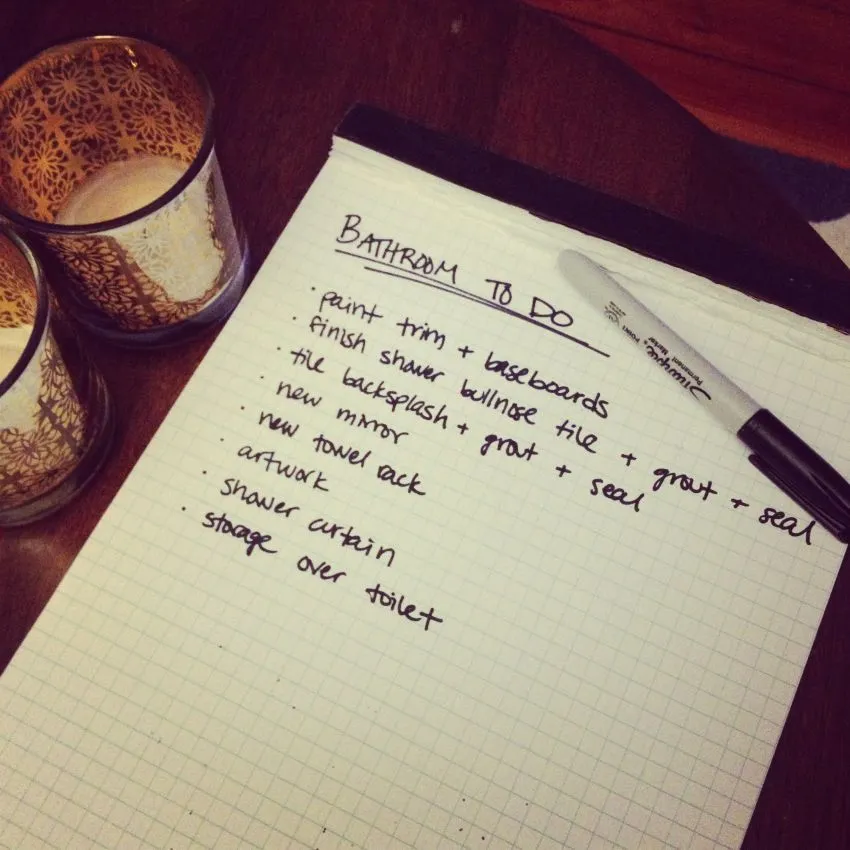 BATHROOM TO DO
· paint trim + baseboards
· finish shower bullnose tile + grout + seal
· tile backsplash + grout + seal
· new mirror
· new towel rack
· artwork
· shower curtain
· storage over toilet
Permanent Marker